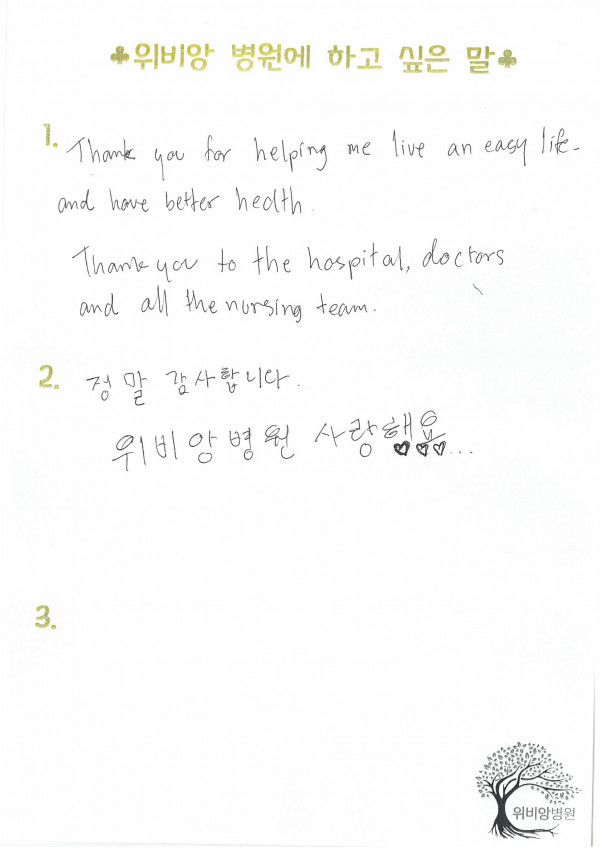 ♣위비앙 병원에 하고 싶은 말♣
1. Thank you for helping me live an easy life-
and have better health.
Thank you to the hospital, doctors
and all the nursing team.
2. 정말 감사합니다.
위비앙병원 사랑해요♥♥♥...
3.
위비앙병원